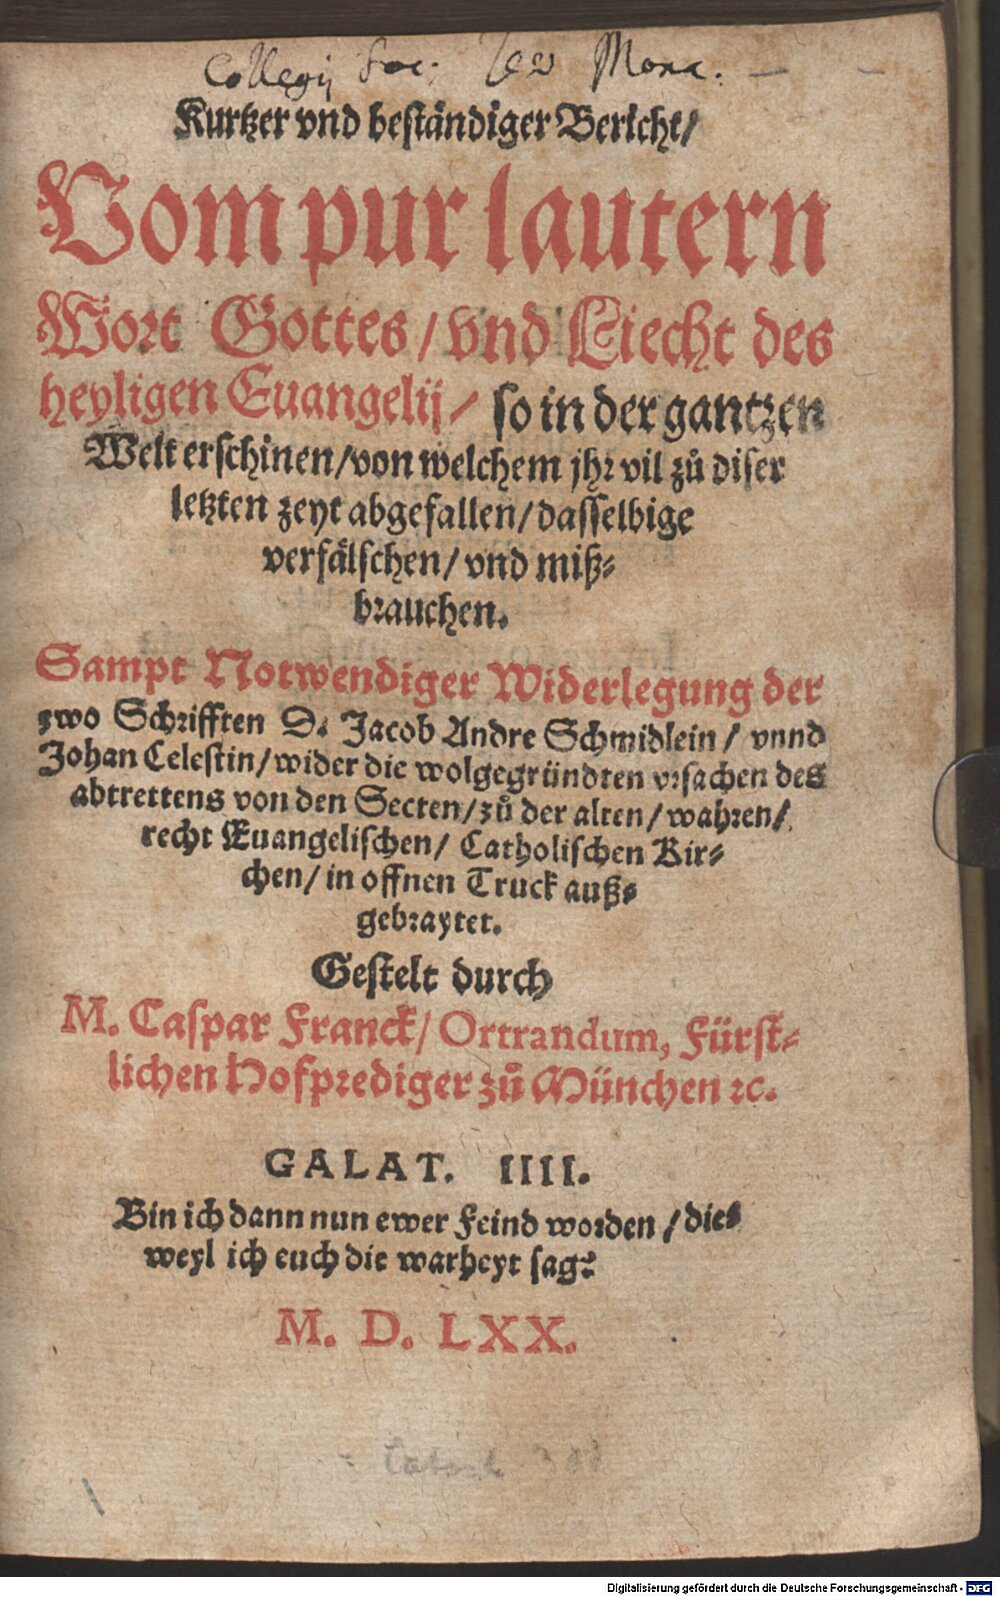 Collegij Soc. Iesu Mona.
Kurtzer vnd beständiger Bericht/
Vom pur lautern
Wort Gottes / vnd Liecht des
heyligen Euangelij / so in der gantzen
Welt erschinen/von welchem jhr vil zů diser
letzten zeyt abgefallen/dasselbige
verfälschen/vnd miß⸗
brauchen.
Sampt Notwendiger Widerlegung der
zwo Schrifften D. Jacob Andre Schmidlein / vnnd
Johan Celestin/wider die wolgegründten vrsachen des
abtrettens von den Secten/zů der alten/wahren/
recht Euangelischen/ Catholischen Kir⸗
chen/in offnen Truck auß⸗
gebraytet.
Gestelt durch
M. Caspar Franck/ Ortrandum, Fürst⸗
lichen Hofprediger zů München ꝛc.
GALAT. IIII.
Bin ich dann nun ewer Feind worden/die⸗
weyl ich euch die warheyt sag?
M. D. LXX.
Digitalisierung gefördert durch die Deutsche Forschungsgemeinschaft - DFG